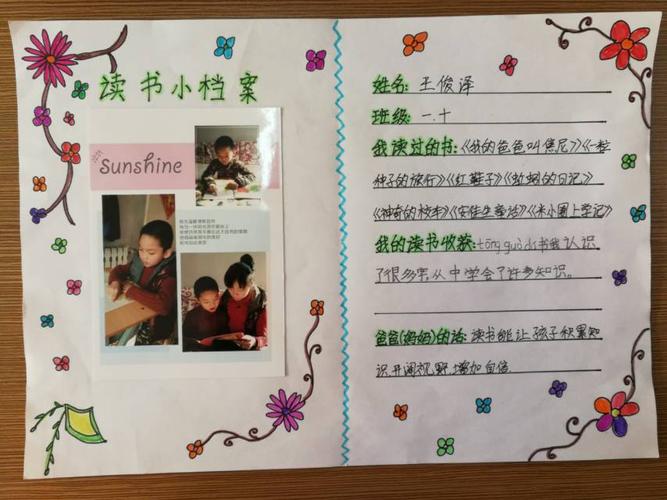 读书小档案
sunshine
姓名：王俊泽
班级：一.十
我读过的书：《我的爸爸叫焦尼》《一粒
种子的旅行》《红鞋子》《蚯蚓的日记》
《神奇的校车》《安徒生童话》《米小圈上学记》
我的读书收获：tōng guò dú书我认识
了很多字,从中学会了许多知识。
爸爸(妈妈)的话：读书能让孩子积累知
识,开阔视野,增加自信